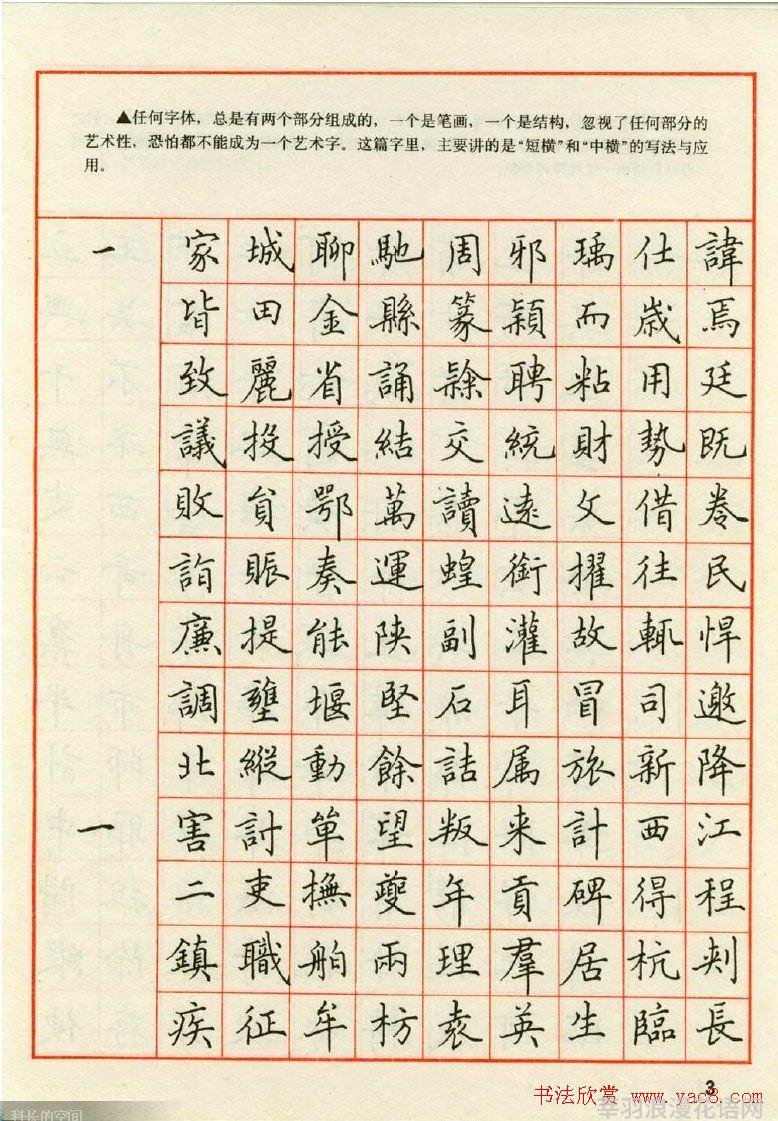 ▲任何字体，总是有两个部分组成的，一个是笔画，一个是结构，忽视了任何部分的
艺术性，恐怕都不能成为一个艺术字。这篇字里，主要讲的是“短横”和“中横”的写法与应
用。
一 家城聊馳周邪瑀仕諱
皆田金縣篆穎而歲焉
致麗省誦聘粘用廷
議投授結交統財勢既
敗貟鄂萬讀遠文借卷
詣賑奏運蝗銜擢往民
廉提能陕副灌故輒悍
調壅堰堅石耳冒司邀
北縱動餘詰属旅新降
一 害討箄望叛来計西江
二吏撫夔年貢碑得程
鎮職舶兩理羣居杭
疾征牟枋袁英生臨長
3
书法欣赏 www.yac8.com
莘羽浪漫花语网
科长的空间